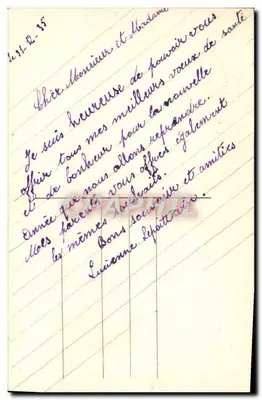 le 31-12-35
Cher Monsieur et Madame
Je suis heureuse de pouvoir vous
offrir tous mes meilleurs vœux de santé
et de bonheur pour la nouvelle
année que nous allons reprendre.
Mes parents vous offres également
les mêmes souhaits.
Bons souvenir et amitiés
Lucienne
CARTHAPHILE